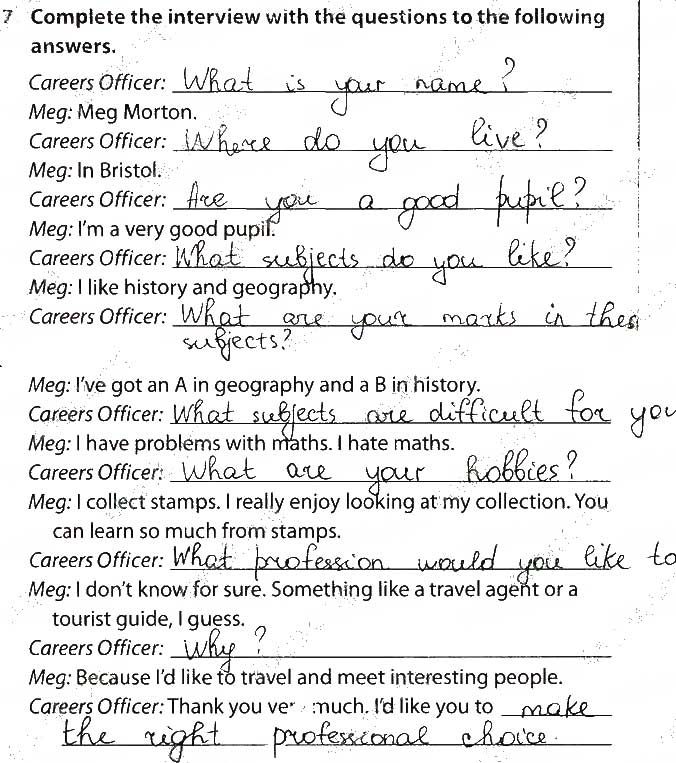 7 Complete the interview with the questions to the following
answers.
Careers Officer: What is your name?
Meg: Meg Morton.
Careers Officer: Where do you live?
Meg: In Bristol.
Careers Officer: Are you a good pupil?
Meg: I'm a very good pupil.
Careers Officer: What subjects do you like?
Meg: I like history and geography.
Careers Officer: What are your marks in thes
subjects?
Meg: I've got an A in geography and a B in history.
Careers Officer: What subjects are difficult for you
Meg: I have problems with maths. I hate maths.
Careers Officer: What are your hobbies?
Meg: I collect stamps. I really enjoy looking at my collection. You
can learn so much from stamps.
Careers Officer: What profession would you like to
Meg: I don't know for sure. Something like a travel agent or a
tourist guide, I guess.
Careers Officer: Why?
Meg: Because I'd like to travel and meet interesting people.
Careers Officer: Thank you ver much. I'd like you to make
the right professional choice.